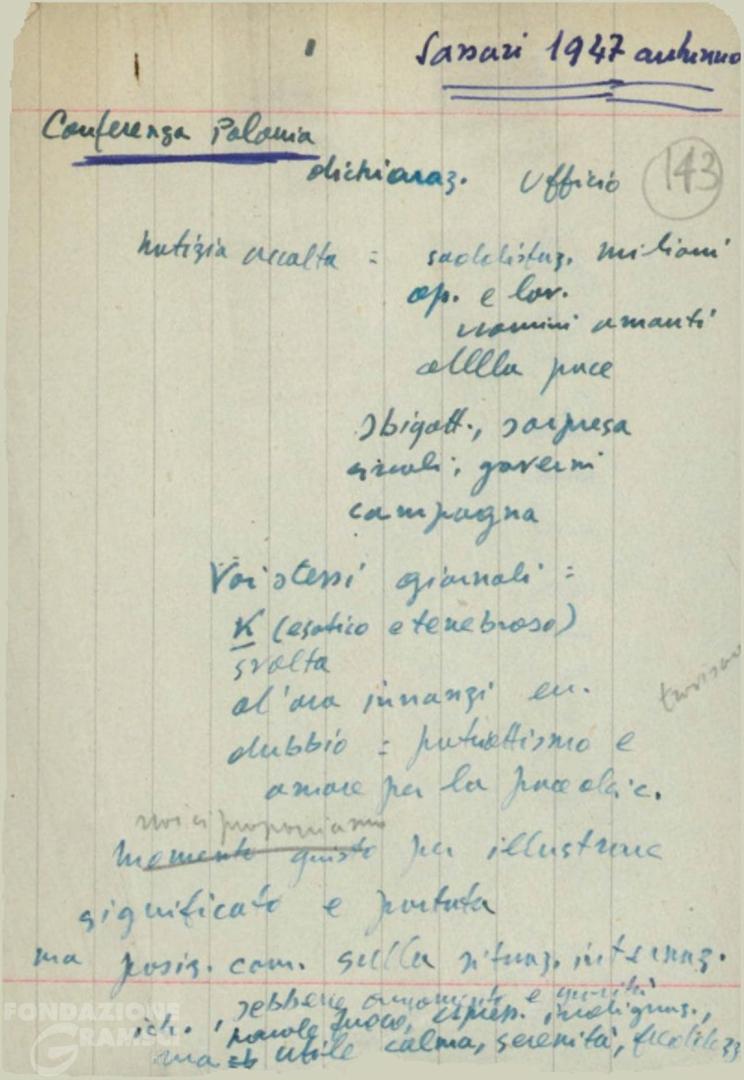 Sassari 1947 autunno
Conferenza Polonia
dichiaraz. Ufficio
143
notizia accolta = soddisfaz. milioni
op. e lav.
uomini amanti
della pace
sbigott., sorpresa
circoli, governi
campagna
Voi stessi giornali =
K (esotico e tenebroso)
svolta
d'ora innanzi
dubbio = patriottismo e
amore per la pace
noi ci proponiamo
momento giusto per illustrare
significato e portata
ma posiz. com. sulla situaz. internaz.
sebbene e
parole fuoco, espress. indignaz.,
ma utile calma, serenità,
FONDAZIONE
GRAMSCI